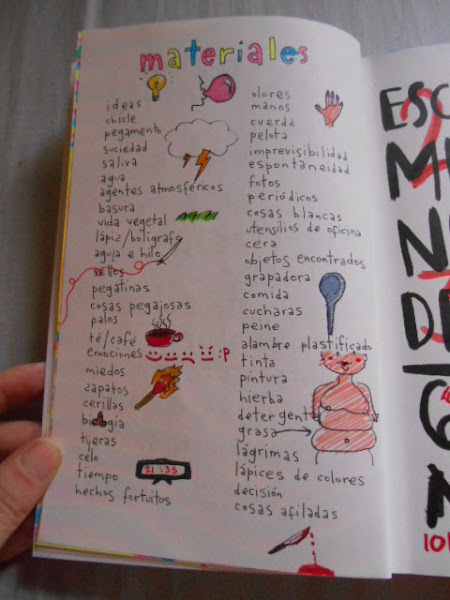 materiales
ideas
chicle
pegamento
suciedad
saliva
agua
agentes atmosféricos
basura
vida vegetal
lápiz/bolígrafo
aguja e hilo
sellos
pegatinas
cosas pegajosas
palos
té/café
emociones :P
miedos
zapatos
cerillas
biología
tijeras
celo
tiempo 21:35
hechos fortuitos
olores
manos
cuerda
pelota
imprevisibilidad
espontaneidad
fotos
periódicos
cosas blancas
utensilios de oficina
cera
objetos encontrados
grapadora
comida
cucharas
peine
alambre plastificado
tinta
pintura
hierba
detergente
grasa
lágrimas
lápices de colores
decisión
cosas afiladas
ESC
M
N
DE
6
N
10